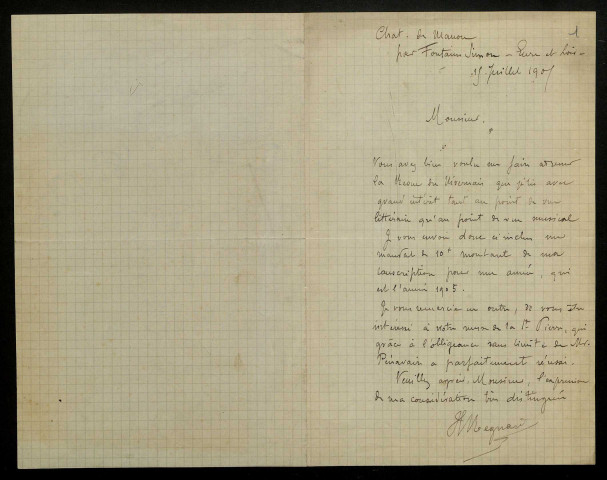 1
Chat. de Manou
par Fontaine Simon - Eure et Loir -
15 Juillet 1905
Monsieur.
Vous avez bien voulu me faire adresser
la Revue du Nivernais que je lis avec
grand intérêt tant au point de vue
littéraire qu'au point de vue musical
Je vous envoie donc ci inclus un
mandat de 10f montant de ma
souscription pour une année, qui
est l'année 1905.
Je vous remercie en outre, de vous être
intéressé à notre messe de la St Pierre, qui
grâce à l'obligeance sans limite de Mr
a parfaitement réussi.
Veuillez agréer, Monsieur, l'expression
de ma considération très distinguée